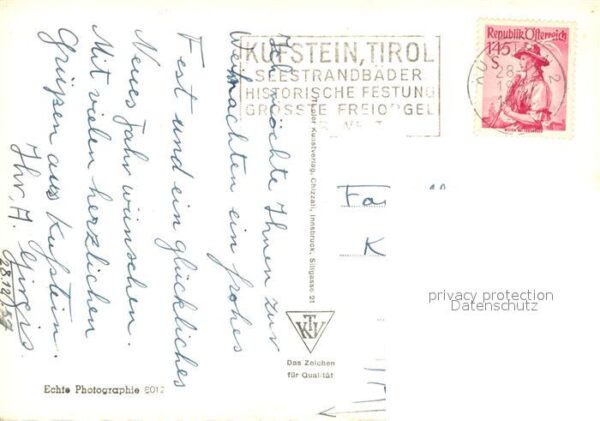 Ich möchte Ihnen zur
Weihnachten ein frohes
Fest und ein glückliches
Neues Jahr wünschen.
Mit vielen herzlichen
Grüßen aus Kufstein.
Ihr, A.
28.12/57
KUFSTEIN, TIROL
SEESTRANDBÄDER
HISTORISCHE FESTUNG
GRÖSSTE FREIORGEL
Republik Österreich
1.45
S
28.
Tiroler Kunstverlag, Chizzali, Innsbruck, Sillgasse 21
Fa
K
privacy protection
Datenschutz
KTV
Das Zeichen
für Qualität
Echte Photographie 6012